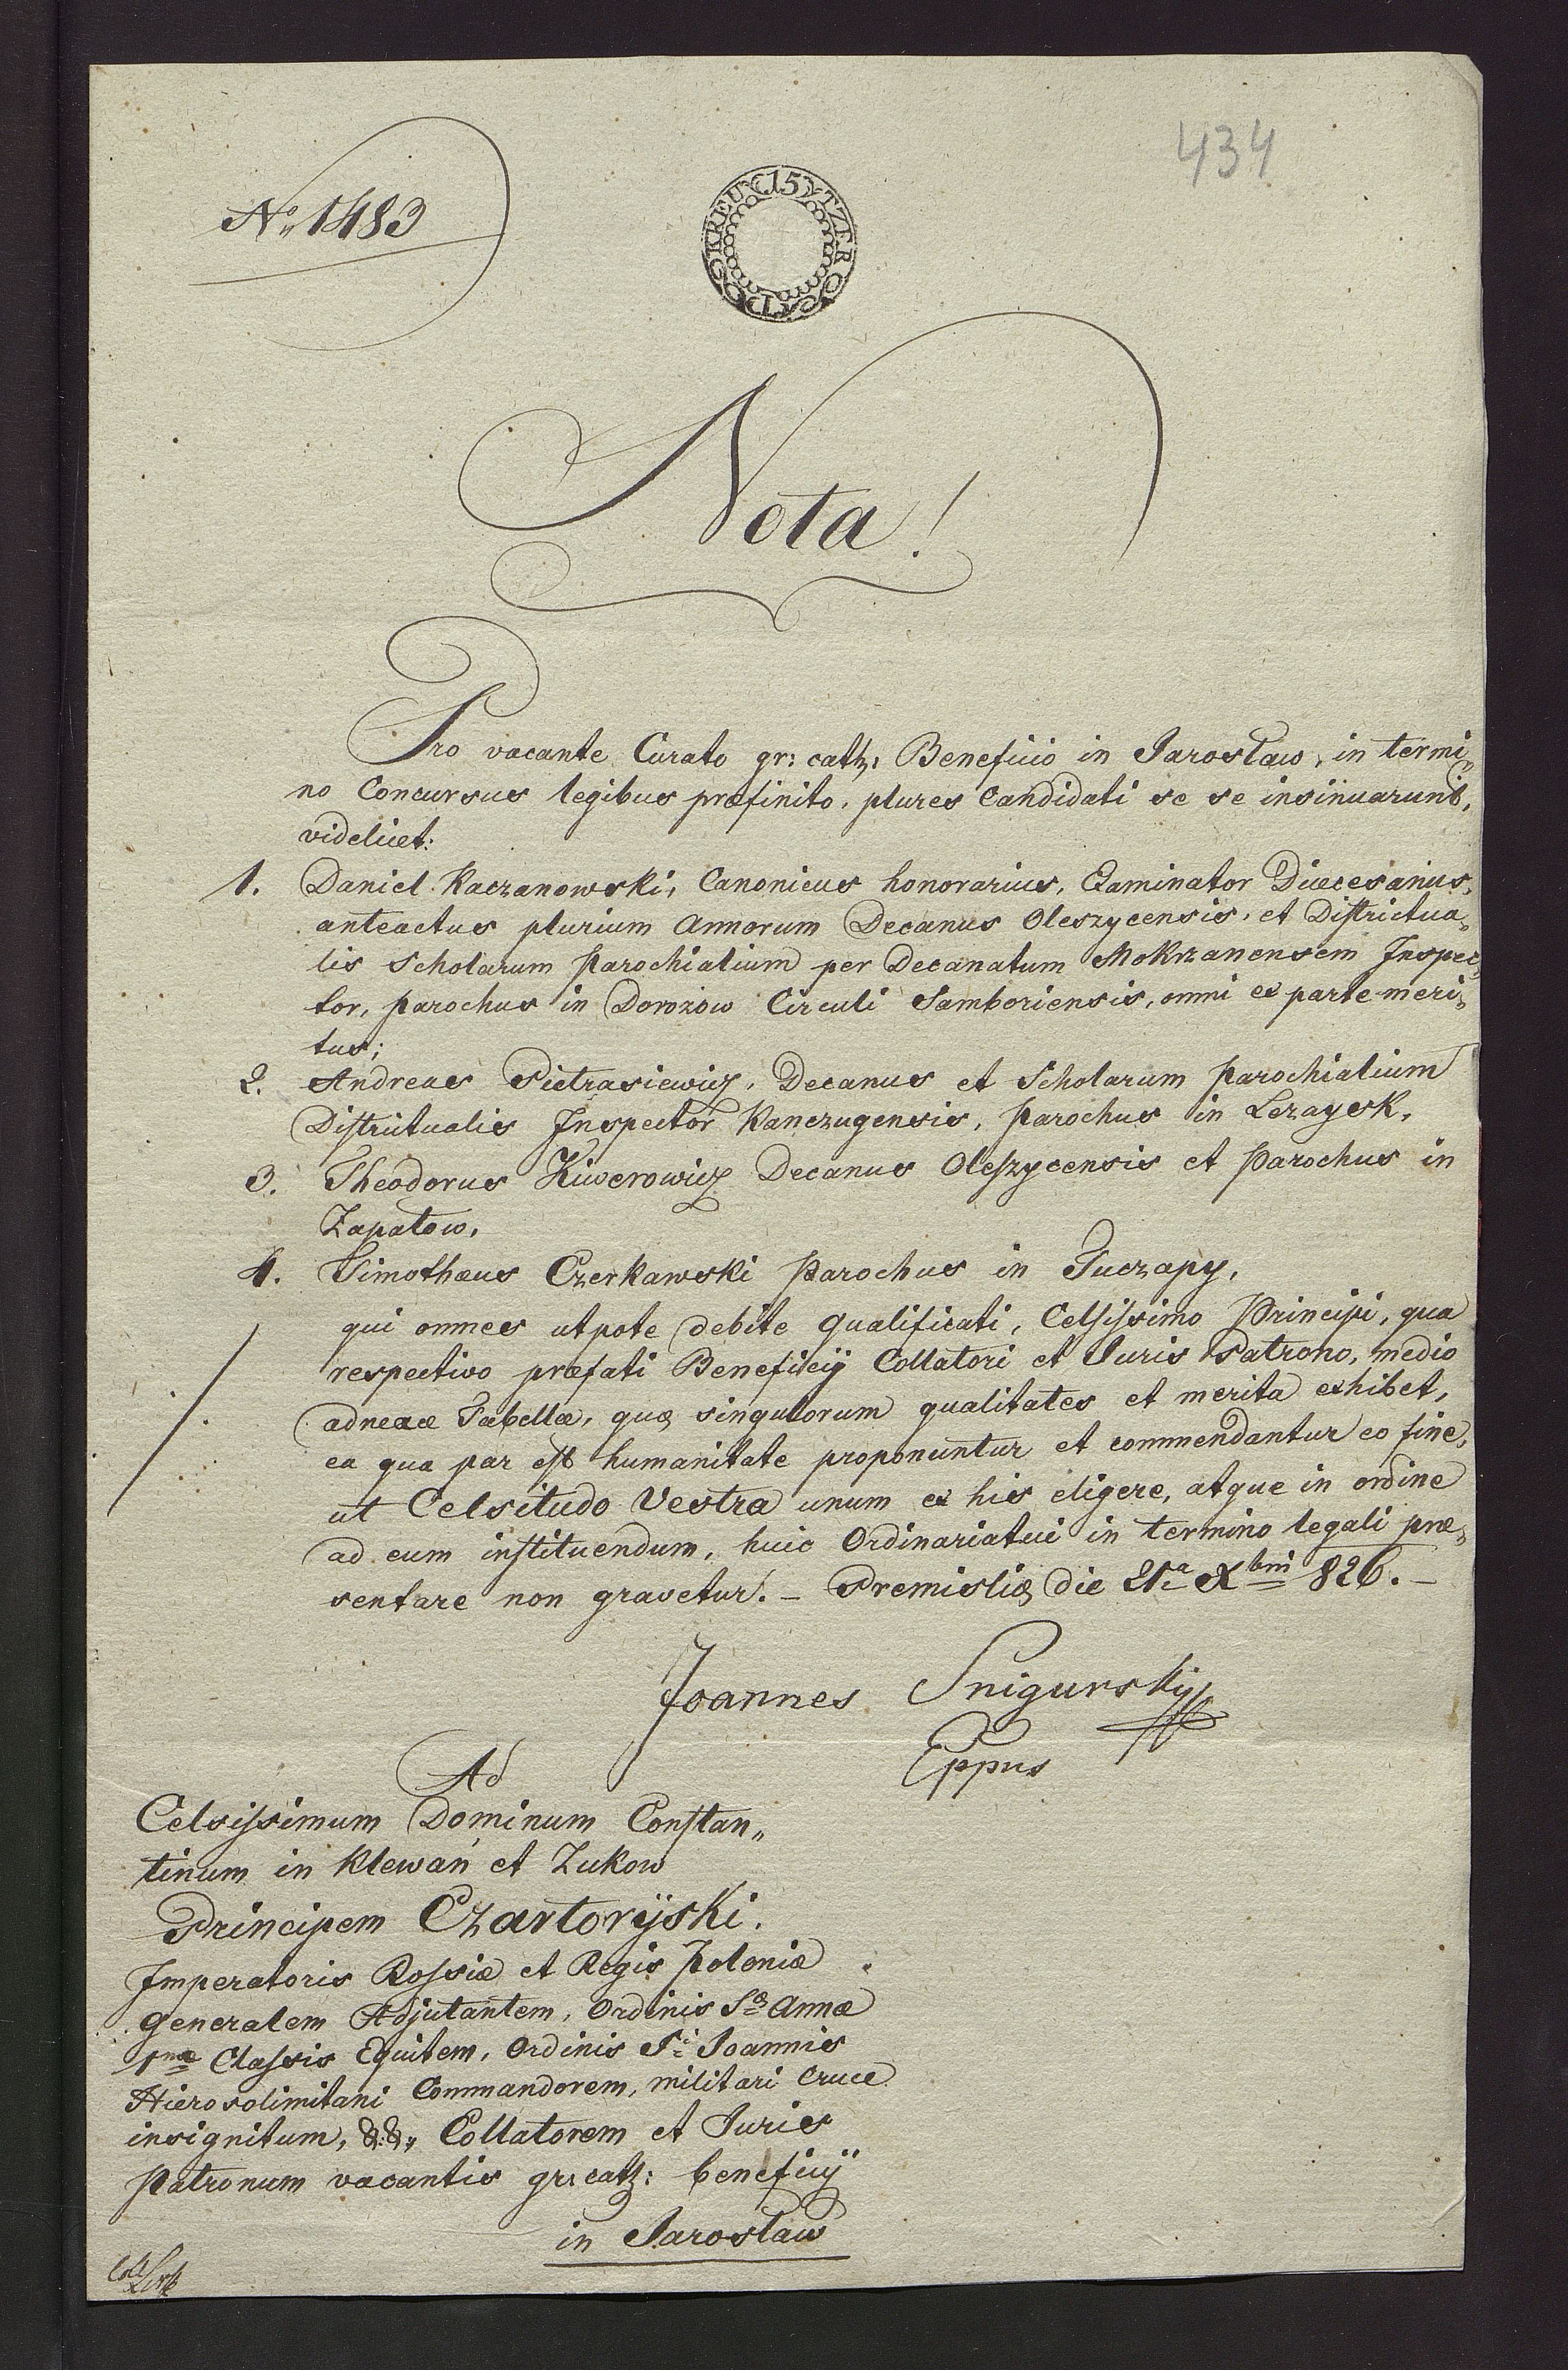 434
No 1483
15 KREUTZER
Nota!
Pro vacante Curato gr: cath: Beneficio in Jarosław, in termi„
no Concursus legibus præfinito, plures Candidati se se insinuarunt,
videlicet:
1. Daniel Kaczanowski, Canonicus honorarius, Examinator Diœcesanus,
anteactus plurium Annorum Decanus Oleszycensis, et Districtua„
lis Scholarum Parochialium per Decanatum Mokrzanensem Inspec„
tor, Parochus in Dorożow Circuli Samboriensis, omni ex parte meri„
tus;
2. Andreas Pietrasiewicz, Decanus et Scholarum Parochialium
Districtualis Inspector Kanczugensis, Parochus in Leżaysk,
3. Theodorus Kiwerowicz Decanus Oleszycensis et Parochus in
Zapałow,
4. Timothæus Czerkawski Parochus in Tuczapy,
qui omnes utpote debite qualificati, Celsissimo Principi, qua
respectivo præfati Beneficij Collatori et Juris Patrono, medio
adnexæ Tabellæ, quæ singulorum qualitates et merita exhibet,
ea qua par est humanitate proponuntur et commendantur eo fine,
ut Celsitudo Vestra unum ex his eligere, atque in ordine
ad eum instituendum, huic Ordinariatui in termino legali præ„
sentare non gravetur. – Premisliæ die 21a Xbris 826. –
Joannes Snigurskij
Eppus
Ad
Celsissimum Dominum Constan„
tinum in Klewań et Zukow
Principem Czartorÿski,
Imperatoris Rossiæ et Regis Poloniæ
Generalem Adjutantem, Ordinis Sæ Annæ
1mæ Classis Equitem, Ordinis Si Joannis
Hierosolimitani Commandorem, militari Cruce
insignitum, &:&:, Collatorem et Juris
Patronum vacantis gr: cath: beneficij
in Jarosław